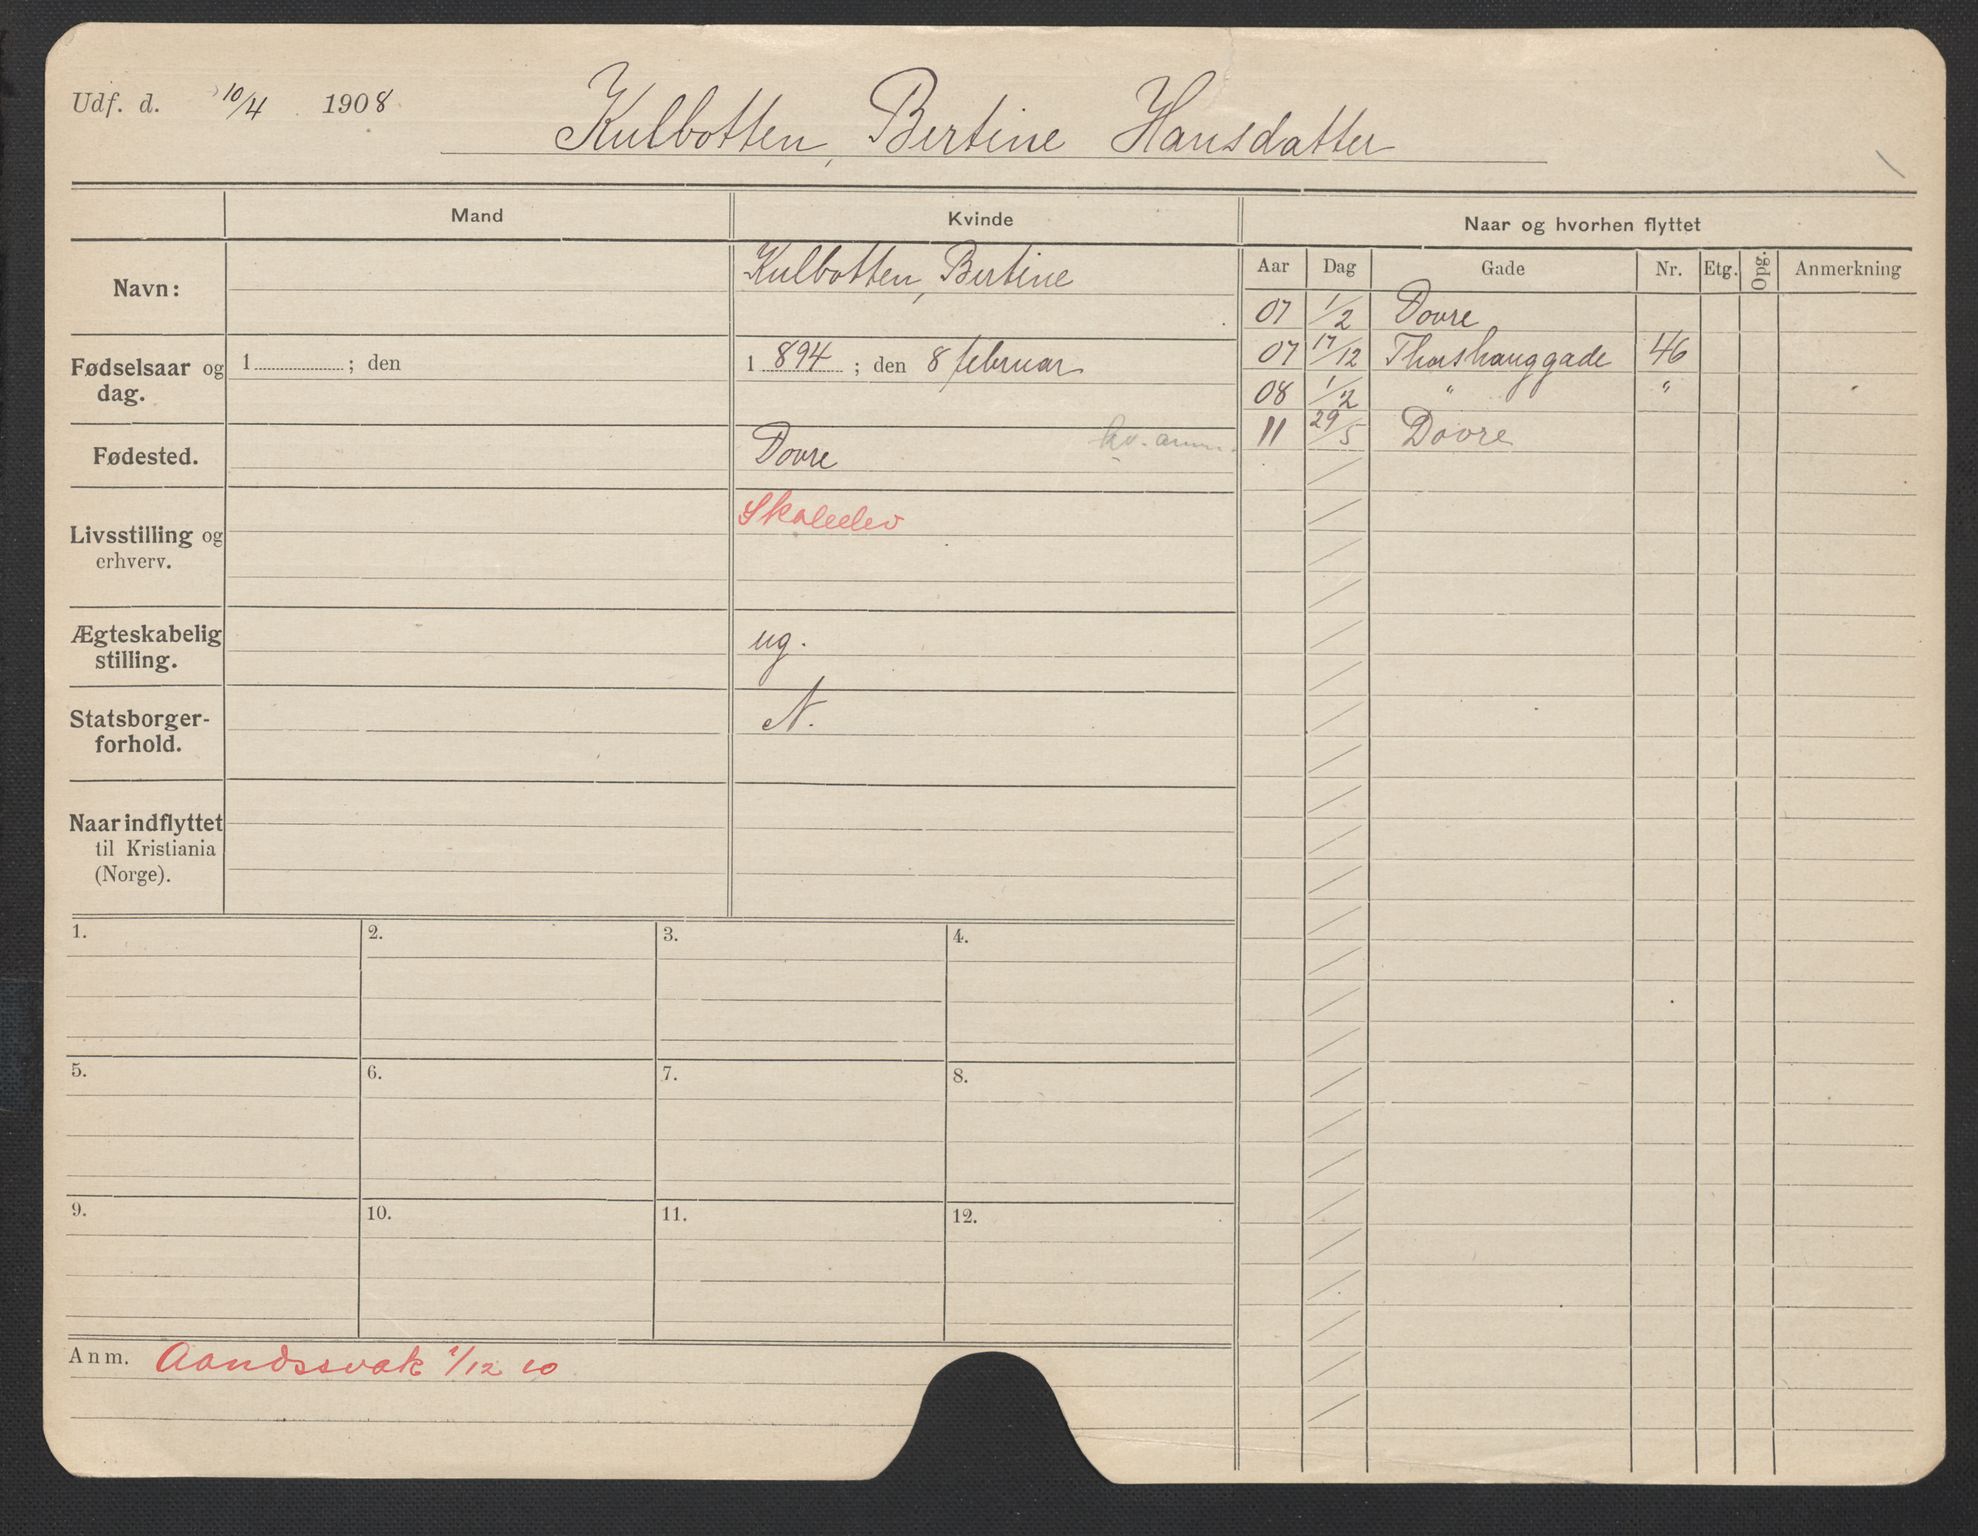 Udf. d. 10/4 1908
Kulbotten, Bertine Hansdatter
Mand Kvinde Naar og hvorhen flyttet
Aar Dag Gade Nr. Etg. Opg. Anmerkning
Navn: Kulbotten, Bertine
Fødselsaar og dag. 1 ; den 1 894 ; den 8 februar
Fødested. Dovre
Livsstilling og erhverv. Skoleelev
Ægteskabelig stilling. ug.
Statsborger-forhold. N.
Naar indflyttet
til Kristiania
(Norge).
07 1/2 Dovre
07 17/12 Thorshauggade 46
08 1/2 " "
11 29/5 Dovre
1. 2. 3. 4.
5. 6. 7. 8.
9. 10. 11. 12.
Anm. Aandssvak 1/12 10